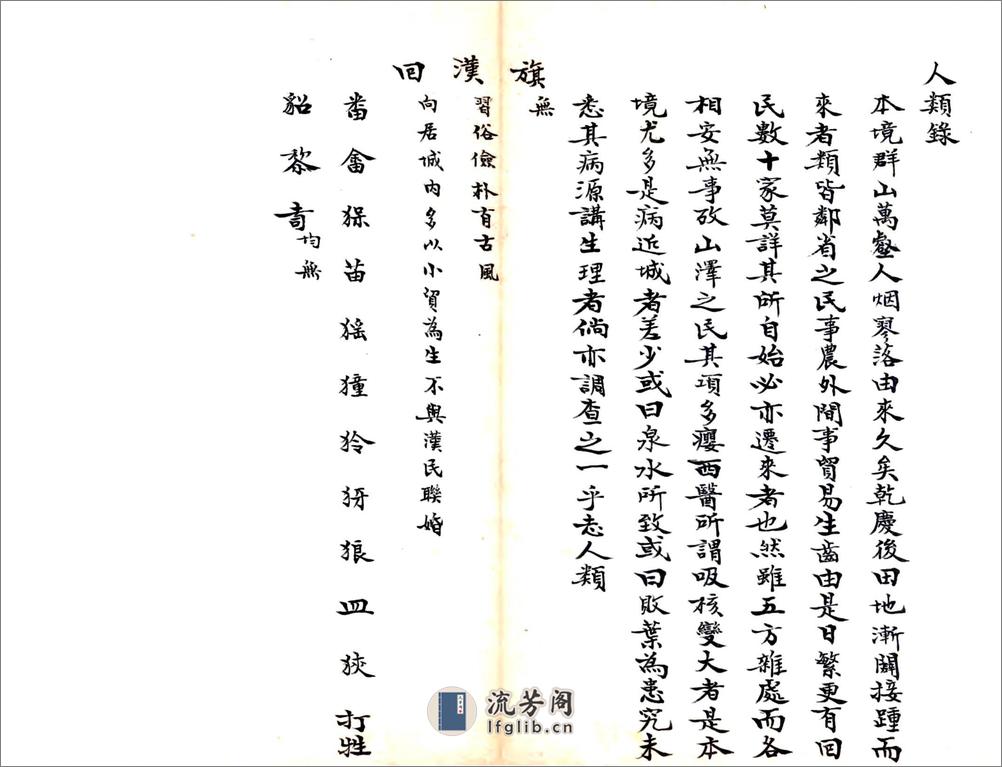 人類錄
本境群山萬壑人烟寥落由來久矣乾慶後田地漸闢接踵而
來者類皆鄰省之民事農外間事貿易生齒由是日繁更有回
民數十家莫詳其所自始必亦遷來者也然雖五方雜處而各
相安無事故山澤之民其項多癭西醫所謂吸核變大者是本
境尤多是病近城者差少或曰泉水所致或曰敗葉為患究未
悉其病源講生理者倘亦調查之一乎志人類
旗
無
漢
習俗儉朴有古風
回
向居城內多以小貿為生不與漢民聯婚
番畲猓苗猺獞狑犽狼皿狹打牲
貂黎
均無
流芳阁
lfglib.cn